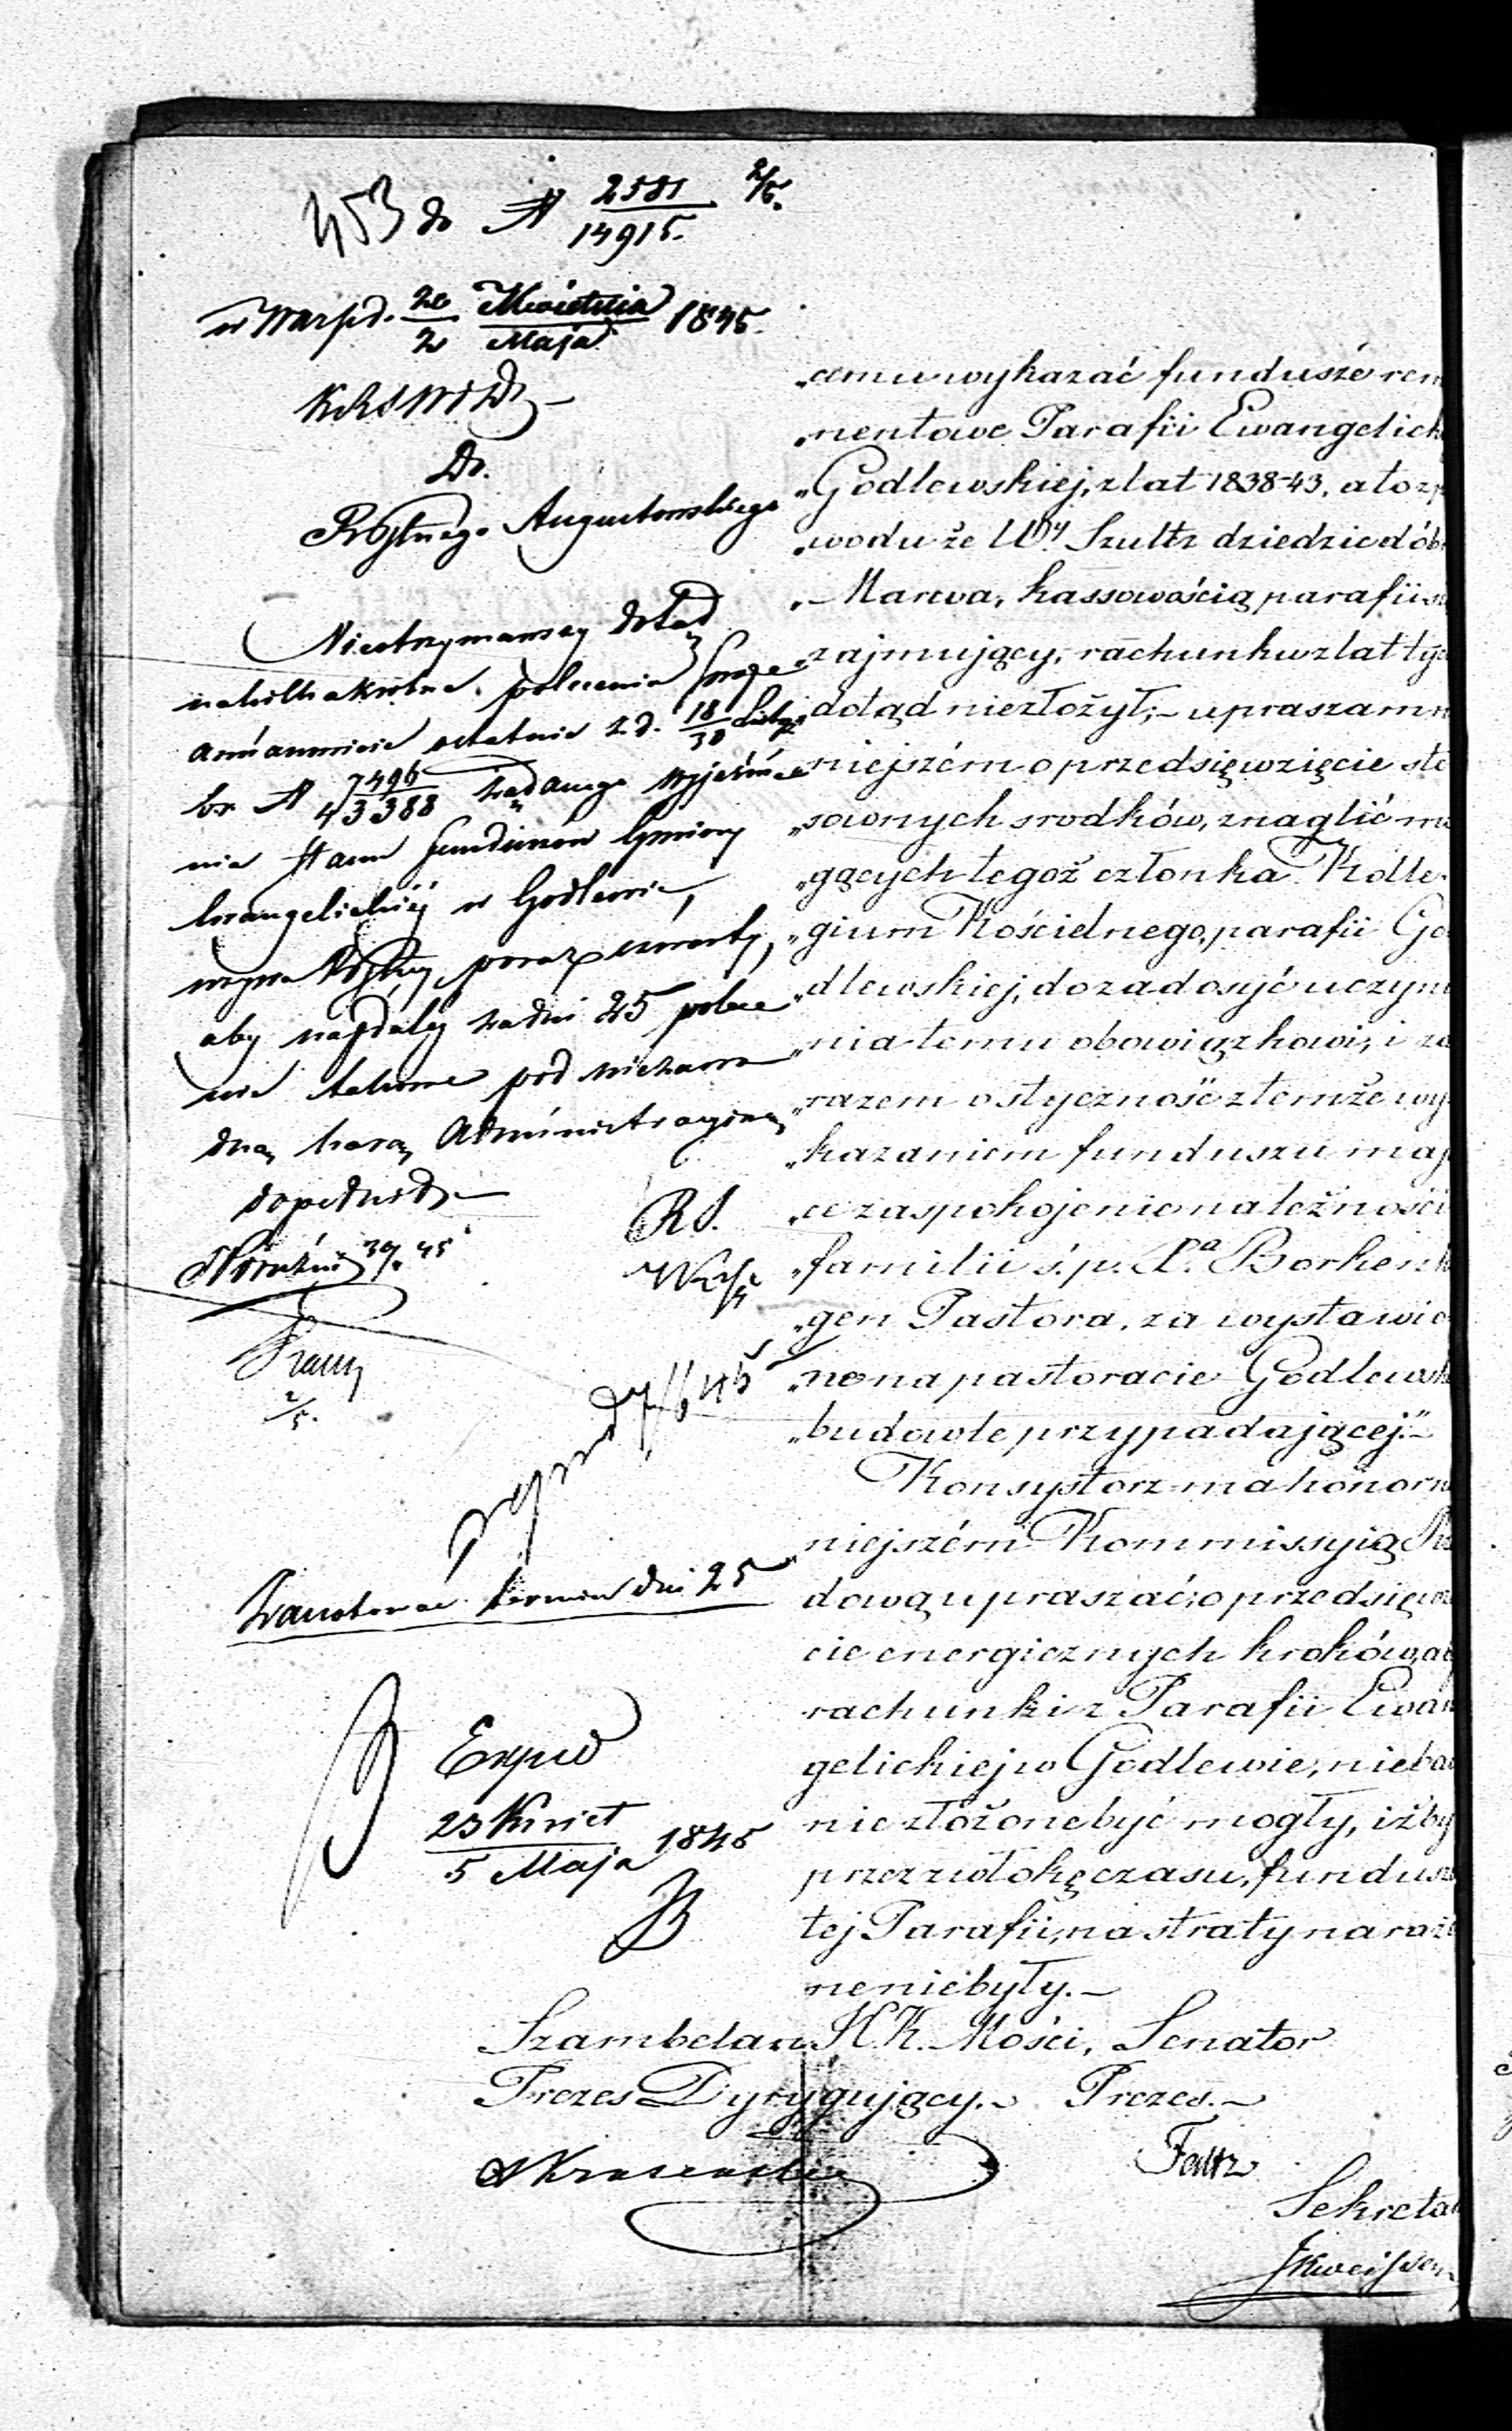 453 do N 2581/14915 2/5.
w Warsz d. 20/2 Kwietnia/Maja 1845.
KRSWiD
Do
Rządu Gubernialnego Augustowskiego
Nieotrzymawszy dotąd
na kilkakrotne polecenia swoje
a mianowicie ostatnie z d. 18/30 Listop
br N 7496/43388 żądanego wyjaśnie
nia stanu funduszów Gminy
Ewangelickiéj w Godlewie,
wzywa poraz czwarty,
aby najdaléj za dni 25 polece
nie takowe pod niezawo
dną karą Administracyjną
dopełnił.
RS.
Zanotować termin dni 25
Exped
23 Kwiet/5 Maja 1845
„cemu wykazać fundusze rem
„nentowe Parafii Ewangelick
„Godlewskiej, z lat 1838-43, a to z p
„wodu że Wny Szultz dziedzic dób
„Marwa, kassowością parafii s
„zajmujący, rachunku z lat tyc
„dotąd niezłożył; – upraszam n
„niejszém o przedsięwzięcie sto
„sownych srodków, znaglić mo
„gących tegoż członka Kolle
„gium Kościelnego, parafii Go
„dlewskiej, do zadosyć uczyni
„nia temu obowiązkowi, i za
„razem o styczność z temże wy
„kazaniem funduszu mają
„ce zaspokojenie należności
„familii ś. p. Xa Borkenh
„gen Pastora, za wystawio
„ne na pastoracie Godlewsk
„budowle przypadającej." –
Konsystorz ma honor n
niejszém Kommissyią Rzą
dową upraszać, o przedsięwzię
cie energicznych kroków, a
rachunki z Parafii Ewan
gelickiej w Godlewie, nieba
nie złożone być mogły, iżby
przez zwłokę czasu, fundusz
tej Parafii, na straty narażo
ne niebyły. –
Szambelan J.C.K. Mości, Senator
Prezes Dyrygujący. – Prezes. –
Faltz
Sekreta